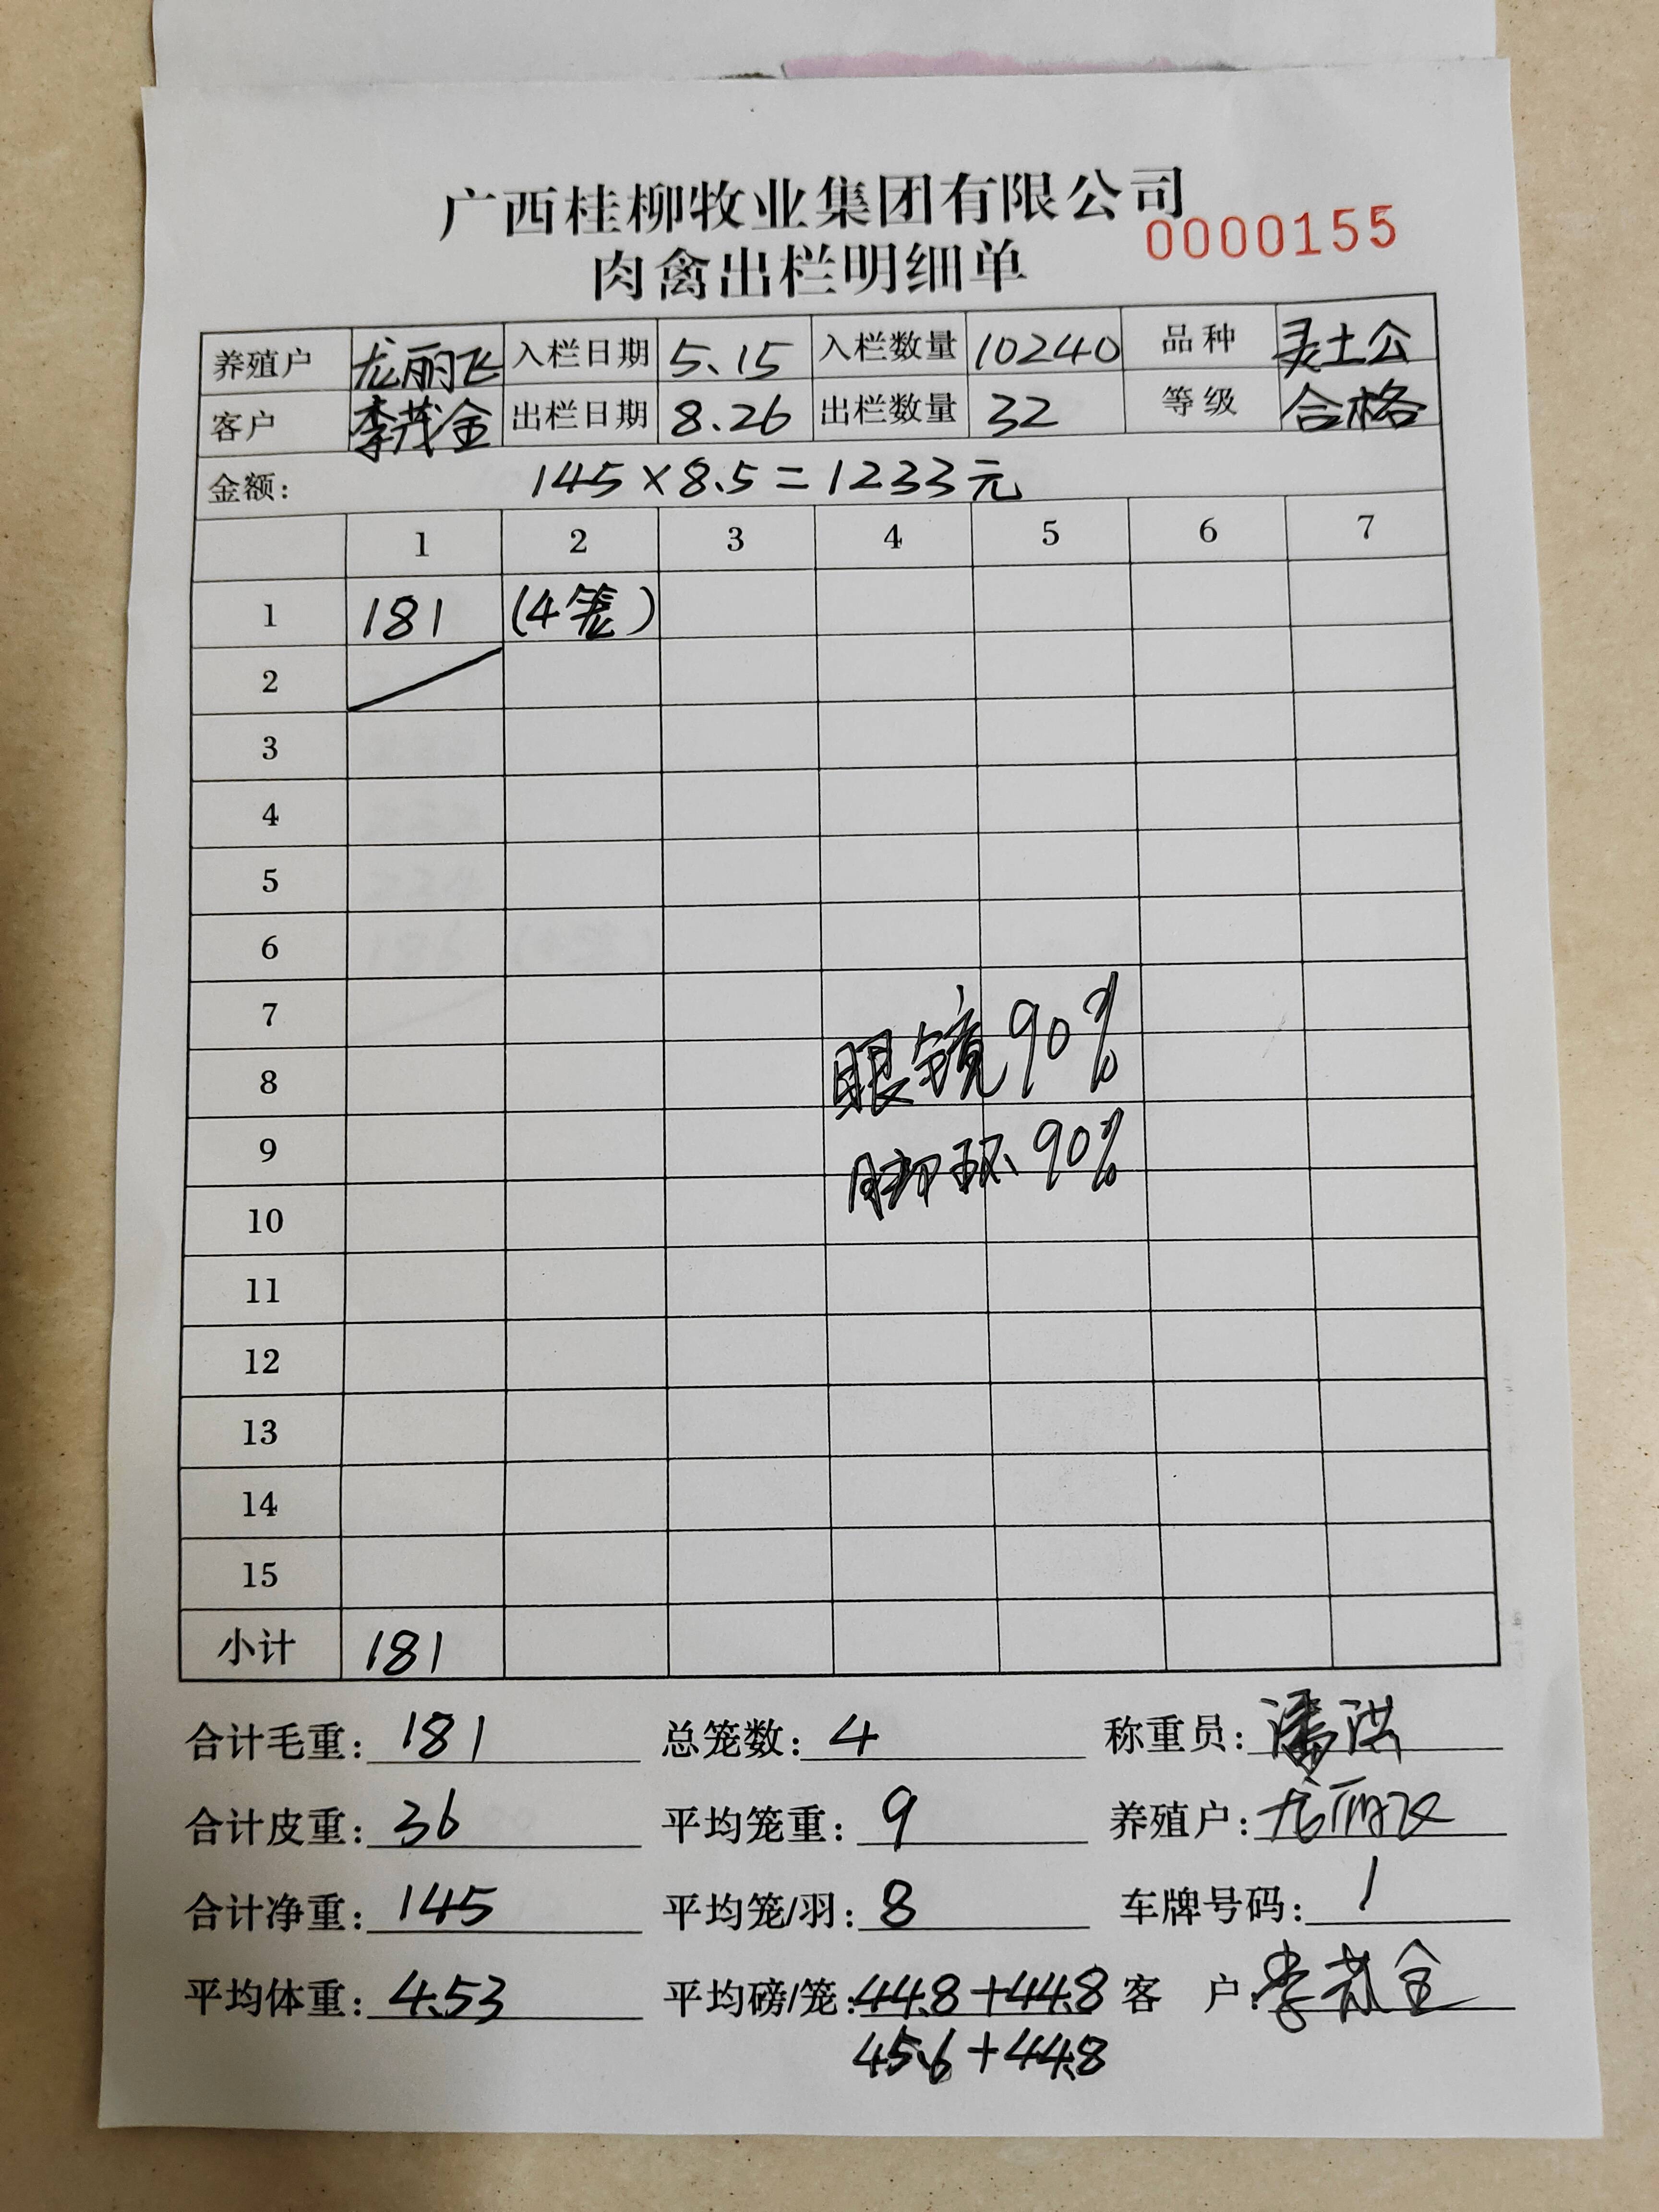 广西桂柳牧业集团有限公司
0000155
肉禽出栏明细单
养殖户 龙丽飞 入栏日期 5.15 入栏数量 10240 品种 灵土公
客户 李茂金 出栏日期 8.26 出栏数量 32 等级 合格
金额: 145×8.5=1233元
1 2 3 4 5 6 7
1 181 (4笼)
2
3
4
5
6
7
8 眼镜90%
9 脚环90%
10
11
12
13
14
15
小计 181
合计毛重: 181 总笼数: 4 称重员: 潘洪
合计皮重: 36 平均笼重: 9 养殖户: 龙丽飞
合计净重: 145 平均笼/羽: 8 车牌号码: /
平均体重: 4.53 平均磅/笼: 44.8+44.8 客 户: 李茂金
45.6+44.8